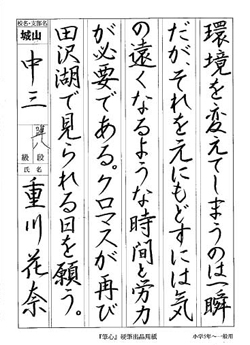 環境を変えてしまうのは一瞬
だが、それを元にもどすには気
の遠くなるような時間と労力
が必要である。クロマスが再び
田沢湖で見られる日を願う。
校名・支部名
城山
中三
準八
級段
氏名
重川花奈
『筆心』硬筆出品用紙
小学5年～一般用